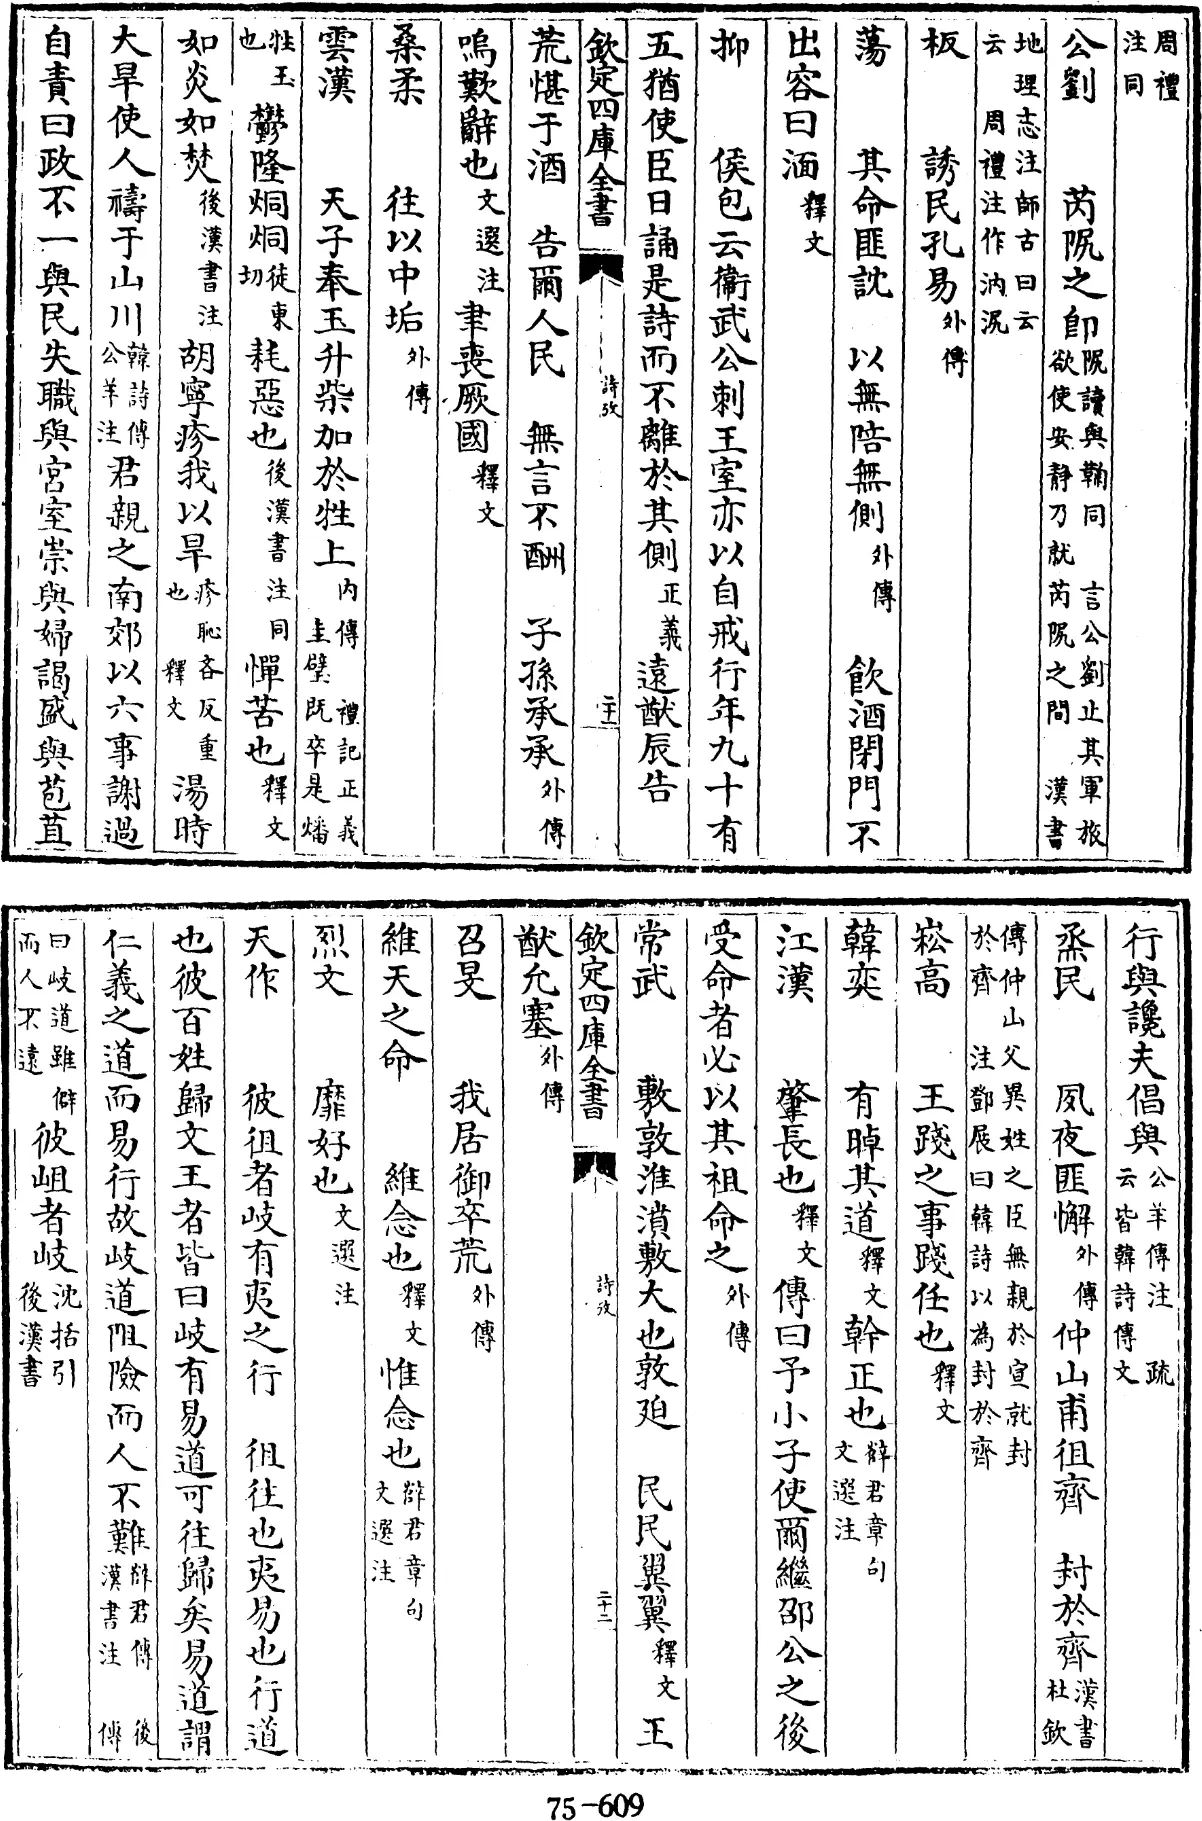 周禮注同
公劉　芮阮之卽阮讀與鞫同　言公劉止其軍旅欲使安靜乃就芮阮之間　漢書
地理志注師古曰云云　周禮注作汭泥
板　誘民孔易外傳
蕩　其命匪訦　以無陪無側外傳　飲酒閉門不
出容曰湎釋文
抑　侯包云衛武公刺王室亦以自戒行年九十有
五猶使臣日誦是詩而不離於其側正義遠猷辰告
欽定四庫全書　詩攷　二十一
荒愖于酒　告爾人民　無言不酬　子孫承承外傳
嗚歎辭也文選注聿喪厥國釋文
桑柔　往以中垢外傳
雲漢　天子奉玉升柴加於牲上内傳　禮記正義圭璧既卒是燔
牲玉也鬱隆烔烔徒東切耗惡也後漢書注同憚苦也釋文
如炎如焚後漢書注胡寧疹我以旱疹恥吝反重也　釋文湯時
大旱使人禱于山川韓詩傳公羊注君親之南郊以六事謝過
自責曰政不一與民失職與宮室崇與婦謁盛與苞苴
行與讒夫倡與公羊傳注　疏云皆韓詩傳文
烝民　夙夜匪懈外傳仲山甫徂齊　封於齊漢書杜欽
傳仲山父異姓之臣無親於宣就封於齊　注鄧展曰韓詩以為封於齊
崧高　王踐之事踐任也釋文
韓奕　有晫其道釋文幹正也薛君章句文選注
江漢　肇長也釋文傳曰予小子使爾繼邵公之後
受命者必以其祖命之外傳
常武　敷敦淮濆敷大也敦廹　民民翼翼釋文王
欽定四庫全書　詩攷　二十二
猷允塞外傳
召旻　我居御卒荒外傳
維天之命　維念也釋文惟念也薛君章句文選注
烈文　靡好也文選注
天作　彼徂者岐有夷之行　徂往也夷易也行道
也彼百姓歸文王者皆曰岐有易道可往歸矣易道謂
仁義之道而易行故岐道阻險而人不難薛君傳　後漢書注　傳
曰岐道雖僻而人不遠彼岨者岐沈括引後漢書
75-609